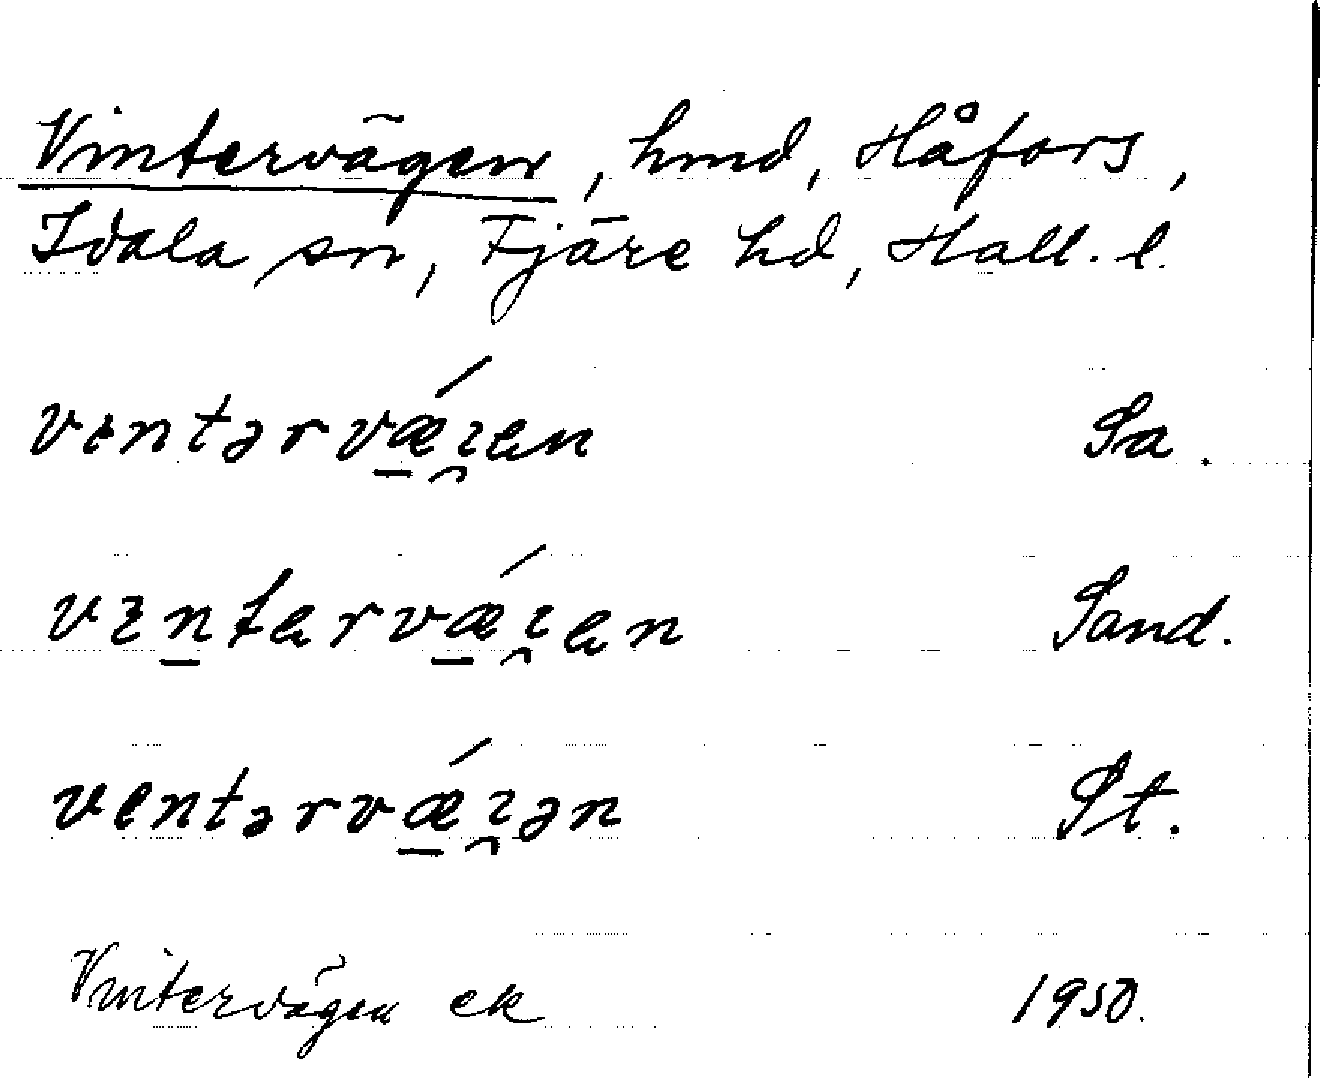 Vintervägen, hmd, Håfors,
Idala sn, Fjäre hd, Hall. l.
vɩntərvǽ̱ɩ̯en Sa.
vɩṉtervǽ̱ɩ̯en Sand.
ventərvǽ̱ɩ̯ən St.
Vintervägen ek 1950.